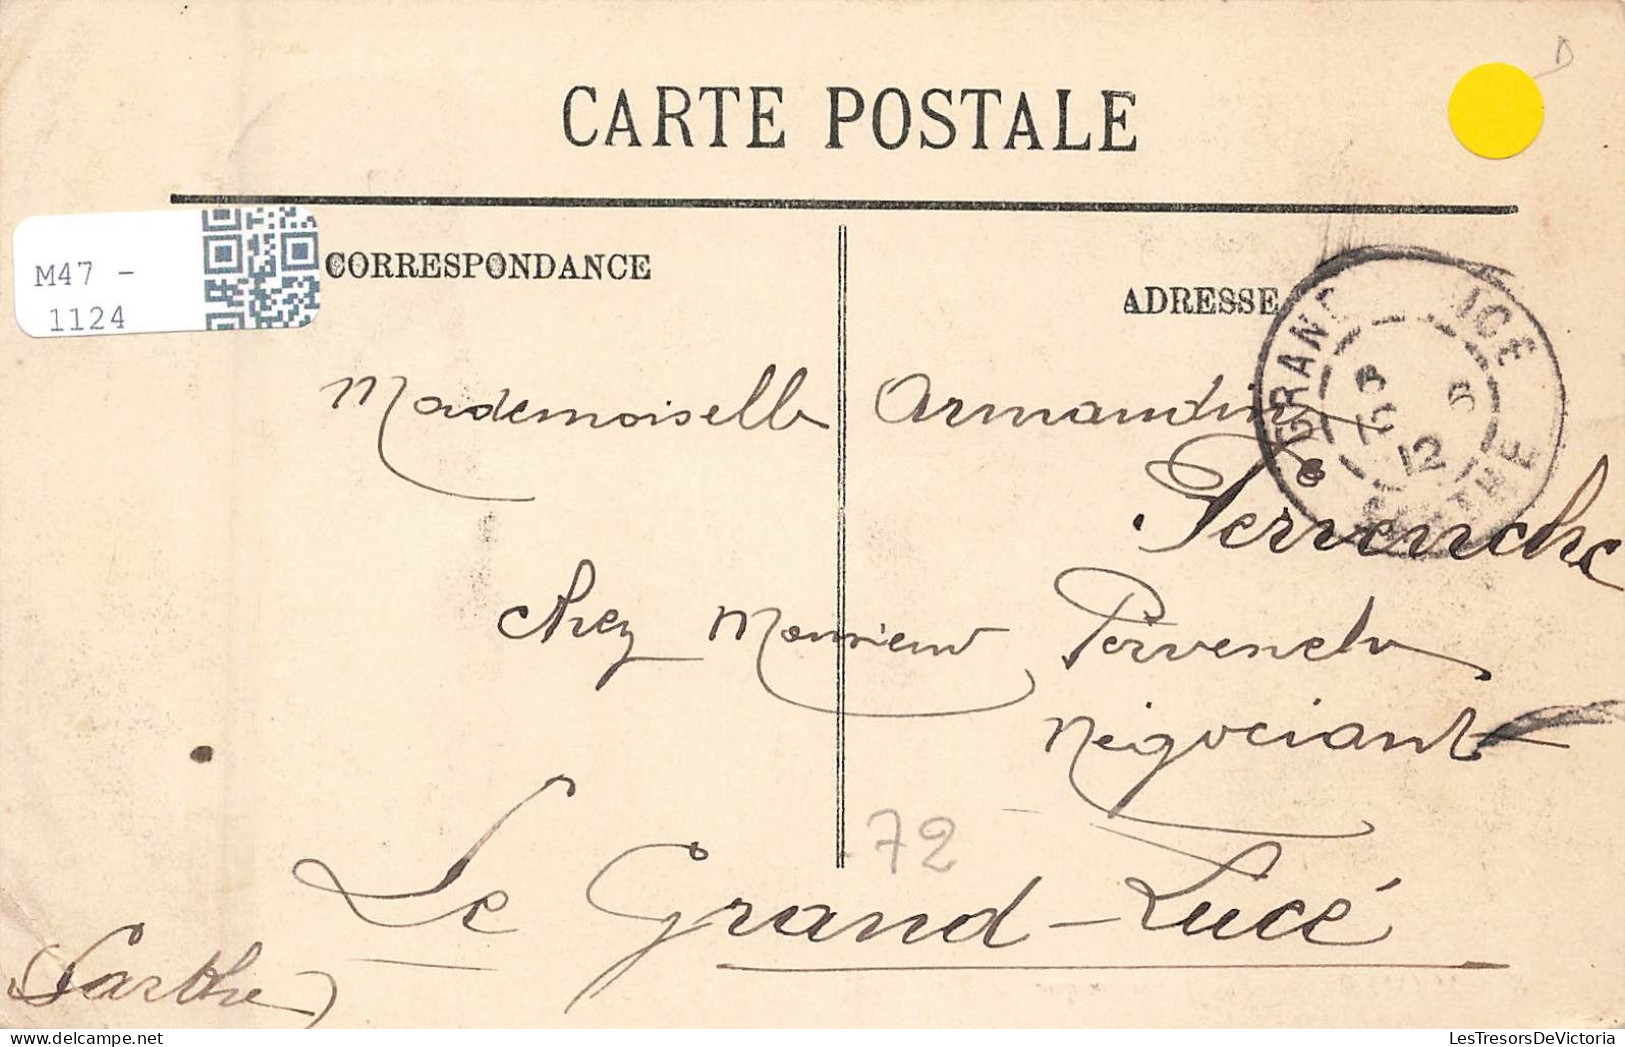 CARTE POSTALE
M47 -
1124
CORRESPONDANCE
ADRESSE
GRAND LUCE
SARTHE
12
Mademoiselle Armandine
Pervenche
chez Monsieur Pervenche
Négociant
72
Le Grand-Lucé
Sarthe
LesTresorsDeVictoria